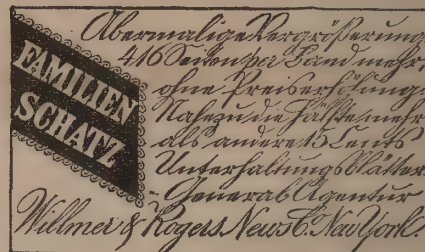 FAMILIEN
SCHATZ
Abermalige Vergrößerung
416 Seiten pa Band mehr,
ohne Preiserhöhung.
Nahezu die Hälfte mehr
als andere 15 Cents
Unterhaltungsblätter
- General Agentur
Willmer & Rogers News C. New York.